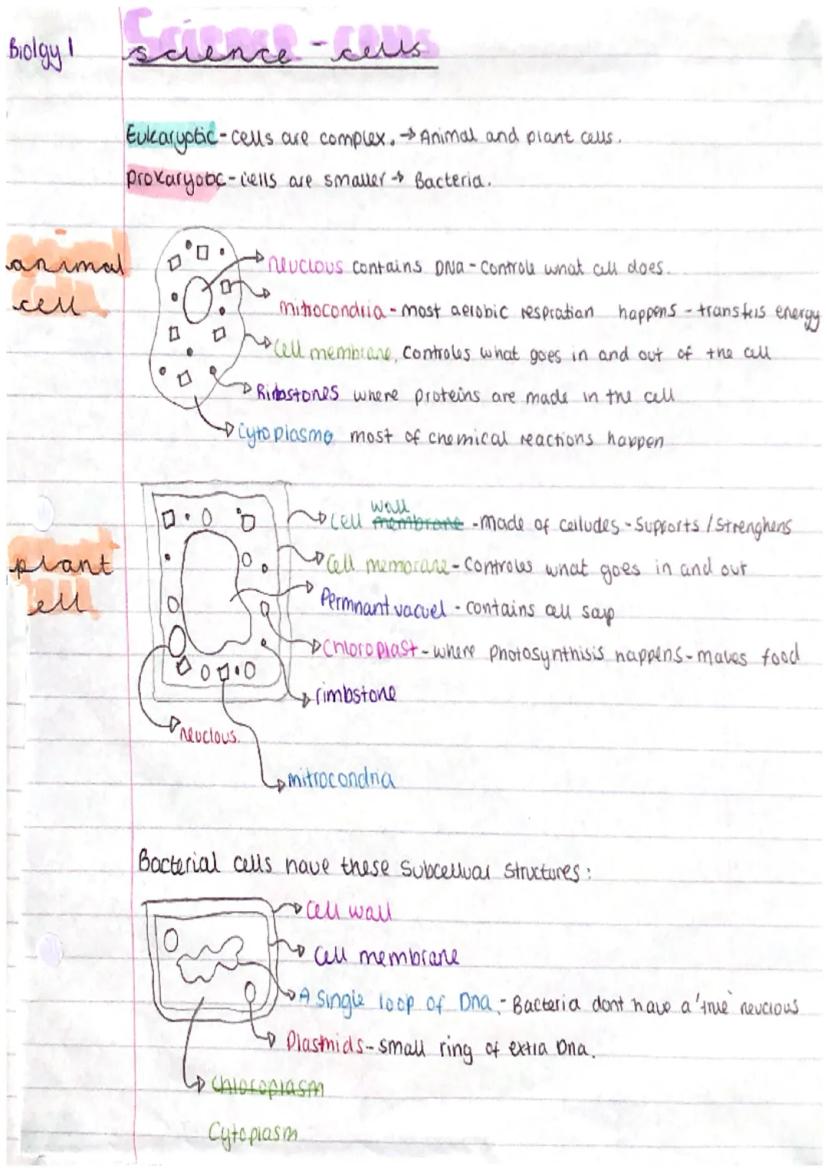 Biolgy 1
Science - cells
science - cells
Eukaryotic - cells are complex. → Animal and plant cells.
Prokaryotic - cells are smaller → Bacteria.
animal
cell
neuclous contains DNA - controls what cell does.
mitrocondria - most aerobic respration happens - transfers energy
Cell membrane, Controles what goes in and out of the cell
Ribstones where proteins are made in the cell
Cytoplasma most of chemical reactions happen
plant
cell
Cell membrane wall - made of celludes - Supports / Strenghens
Cell membrane - Controles what goes in and out
Permnant vacuel - contains cell sap
Chloroplast - where photosynthisis happens - makes food
rimbstone
neuclous.
mitrocondria
Bacterial cells have these subcelluar structures:
Cell wall
Cell membrane
A single loop of Dna. - Bacteria dont have a 'true' neuclous
Plasmids - small ring of extra Dna.
Chloroplasm
Cytoplasm